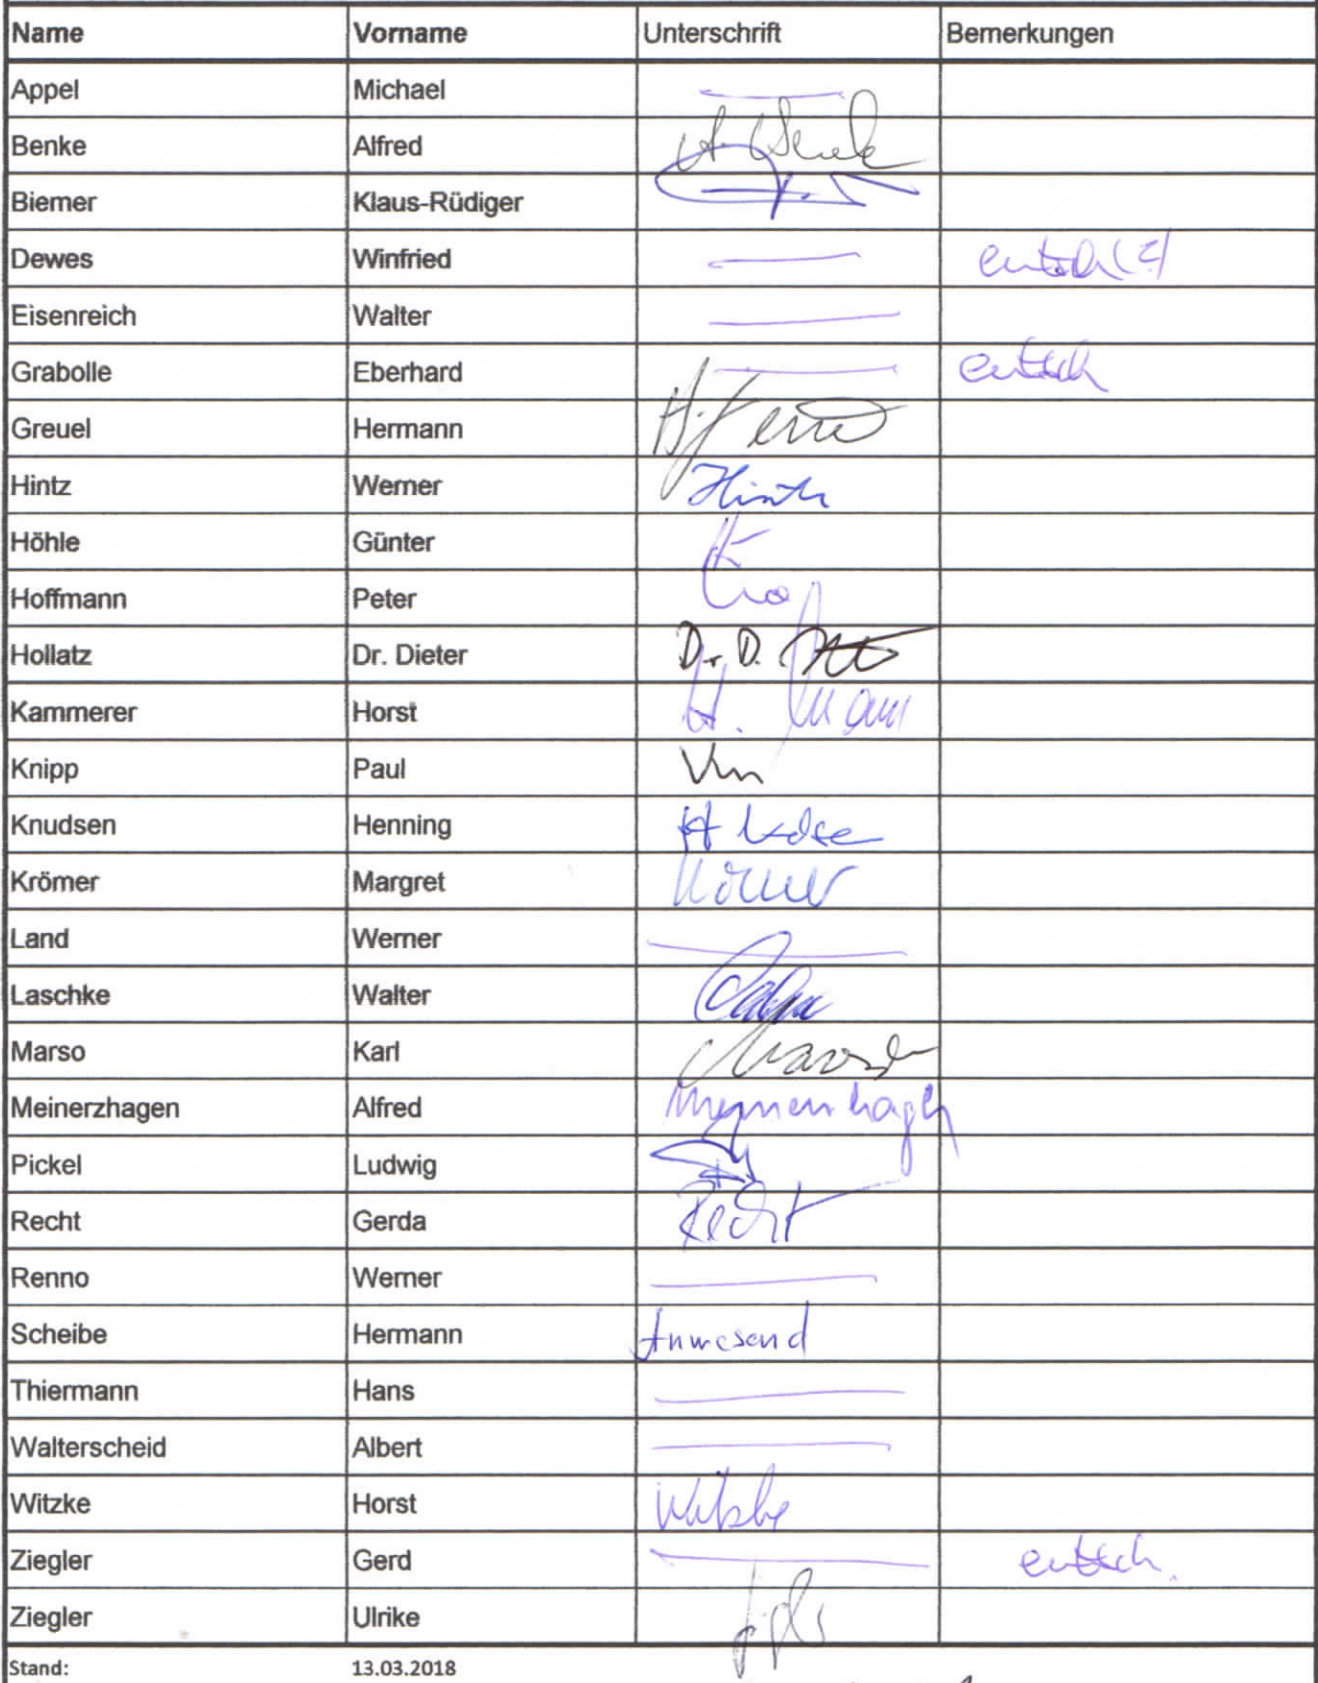 Name Vorname Unterschrift Bemerkungen
Appel Michael
Benke Alfred A. Benke
Biemer Klaus-Rüdiger
Dewes Winfried entsch (?)
Eisenreich Walter
Grabolle Eberhard entsch
Greuel Hermann
Hintz Werner Hintz
Höhle Günter
Hoffmann Peter
Hollatz Dr. Dieter Dr. D.
Kammerer Horst H.
Knipp Paul
Knudsen Henning H
Krömer Margret Krömer
Land Werner
Laschke Walter
Marso Karl Marso
Meinerzhagen Alfred Meinerzhagen
Pickel Ludwig
Recht Gerda Recht
Renno Werner
Scheibe Hermann Anwesend
Thiermann Hans
Walterscheid Albert
Witzke Horst Witzke
Ziegler Gerd entsch.
Ziegler Ulrike
Stand: 13.03.2018